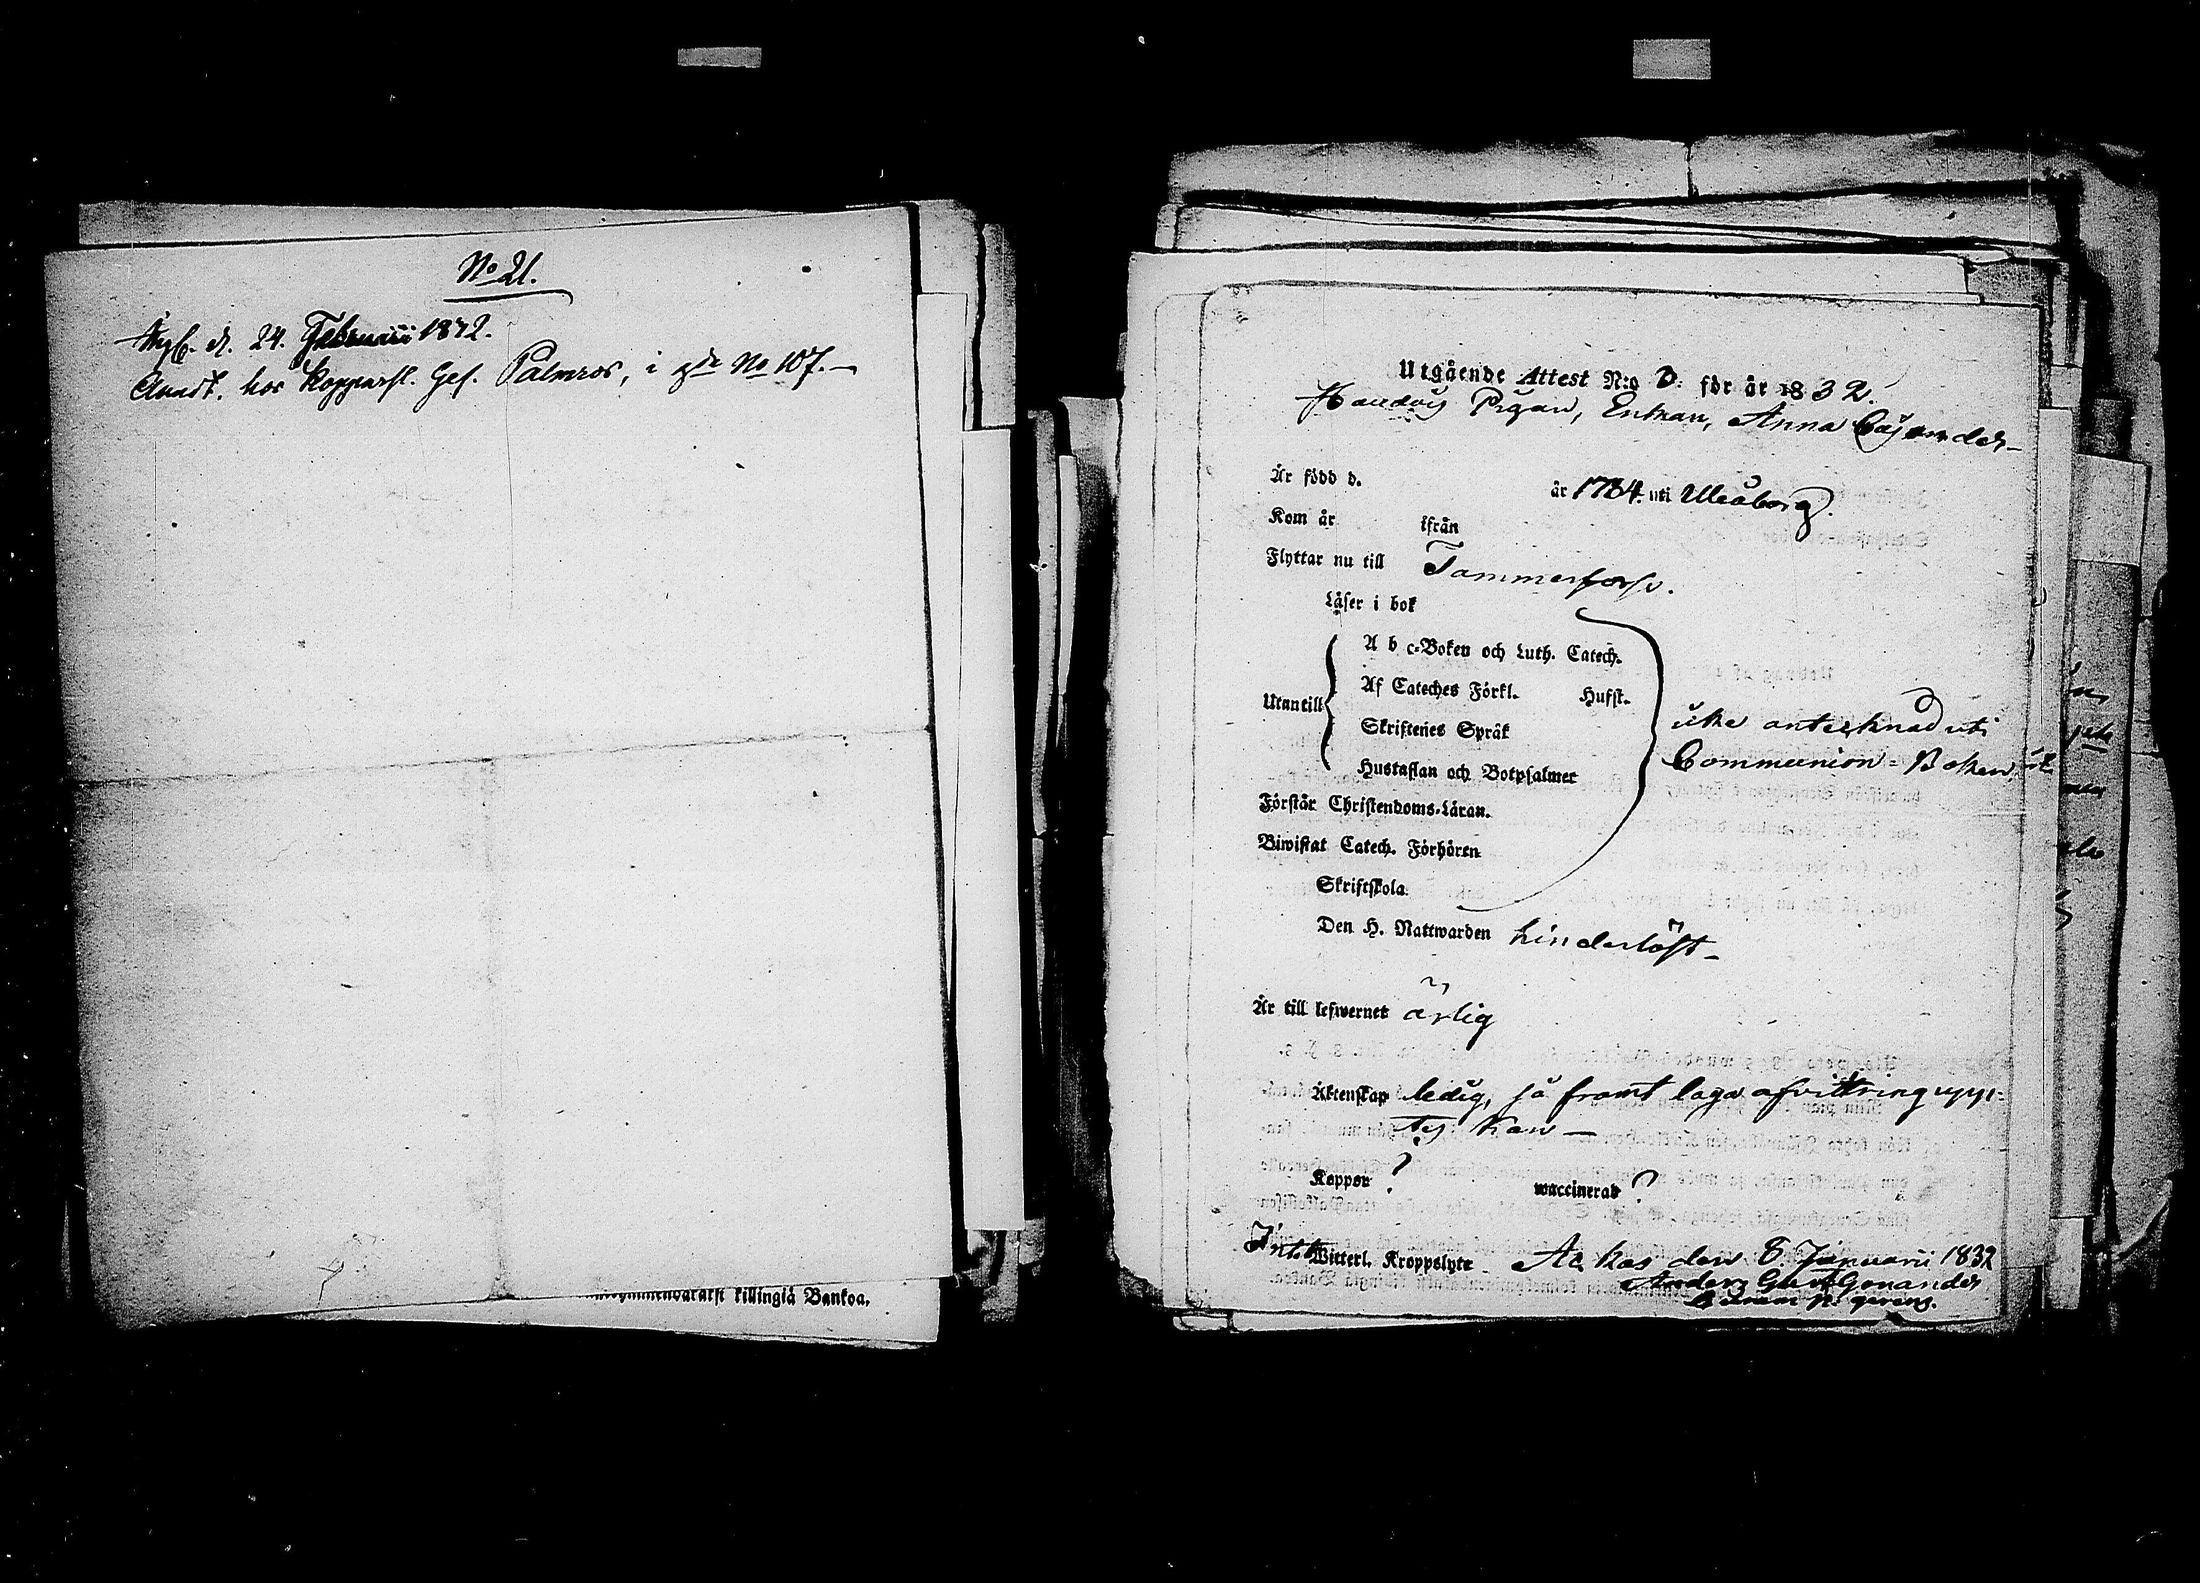 No 21.
d. 24. Februarii 1832.
hos Kopparsl. Ges. Palmros, i gdn No 107. —
killingiä Bankoa.
Utgående Attest N:o 3. för år 1832.
Pigan, Enkan, Anna Cajander
Är född d. år 1784. uti Uleåborg.
Kom år ifrån
Flyttar nu till Tammerfors.
Läser i bok
Utantill
A b c-Boken och Luth. Catech.
Af Cateches Förkl. Husst.
Skriftenes Språk
Hustaflan och Botpsalmer
icke antecknad uti
Communion-Boken
Förstår Christendoms-Läran.
Biwistat Catech. Förhören
Skriftskola.
Den H. Nattwarden hinderlöst —
Är till lefwernet ärlig
Äktenskap ledig, så framt laga afvittring upp-
tes kan —
Koppor ? waccinerad ?
Intet Witterl. Kroppslyte Ackas den 8. Januarii 1832
Anders Gust. Gonander